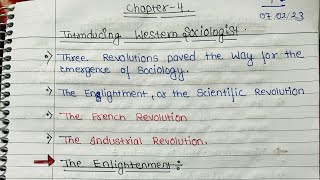 Chapter-4.
07.02/23
Introducing Western Sociologist.
Three Revolutions paved the way for the
emergence of Sociology.
The Englightment, or the Scientific Revolution
The French Revolution
The Industrial Revolution.
The Enlightenment: